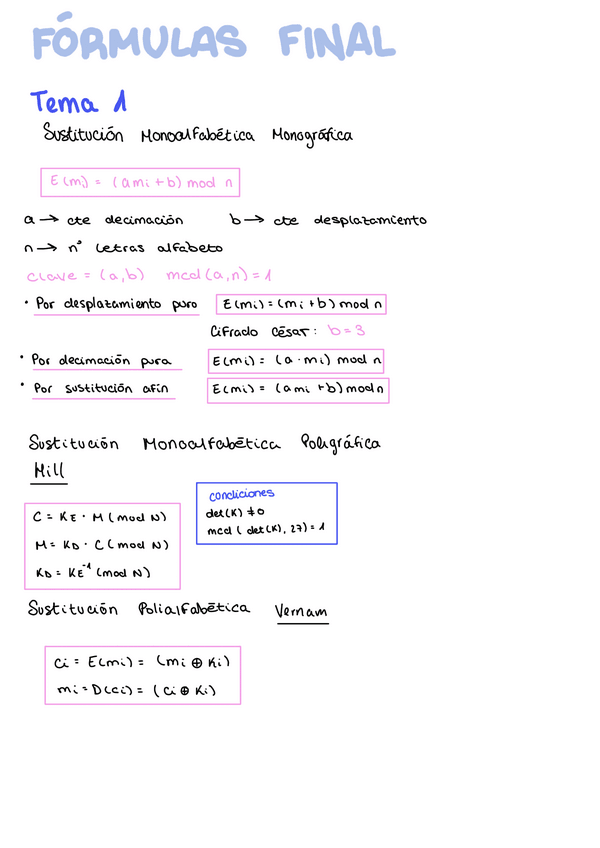 FÓRMULAS FINAL
Tema 1
Sustitución Monoalfabética Monográfica
E(mi) = (ami + b) mod n
a → cte decimación b → cte desplazamiento
n → nº letras alfabeto
clave = (a,b) mcd(a,n) = 1
• Por desplazamiento puro E(mi) = (mi + b) mod n
Cifrado César: b=3
• Por decimación pura E(mi) = (a · mi) mod n
• Por sustitución afín E(mi) = (ami + b) mod n
Sustitución Monoalfabética Poligráfica
Hill
condiciones
det(K) ≠ 0
mcd ( det(K), 27) = 1
C = KE · M (mod N)
M = KD · C (mod N)
KD = KE⁻¹ (mod N)
Sustitución Polialfabética Vernam
Ci = E(mi) = (mi ⊕ Ki)
mi = D(ci) = (Ci ⊕ Ki)